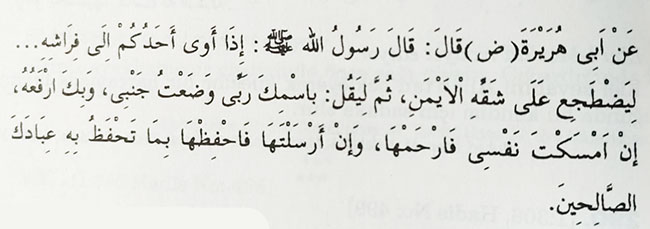 عَنْ اَبِى هُرَيْرَةَ (ض) قَالَ: قَالَ رَسُولُ الله ﷺ: إِذَا أَوَى أَحَدُكُمْ اِلَى فِرَاشِهِ...
لِيضْطَجِع عَلَى شَقِّه الْاَيْمَنِ، ثُمَّ لِيَقُل: بِاسْمِكَ رَبِّى وَضَعْتُ جَنْبِى، وَبِكَ ارْفَعُهُ،
إنْ اَمْسَكْتَ نَفْسِى فَارْحَمْهَا، وَإِن أَرْسَلْتَهَا فَاحْفِظْهَا بِمَا تَحْفَظُ بِهِ عِبَادَكَ
الصَّالِحِينَ.